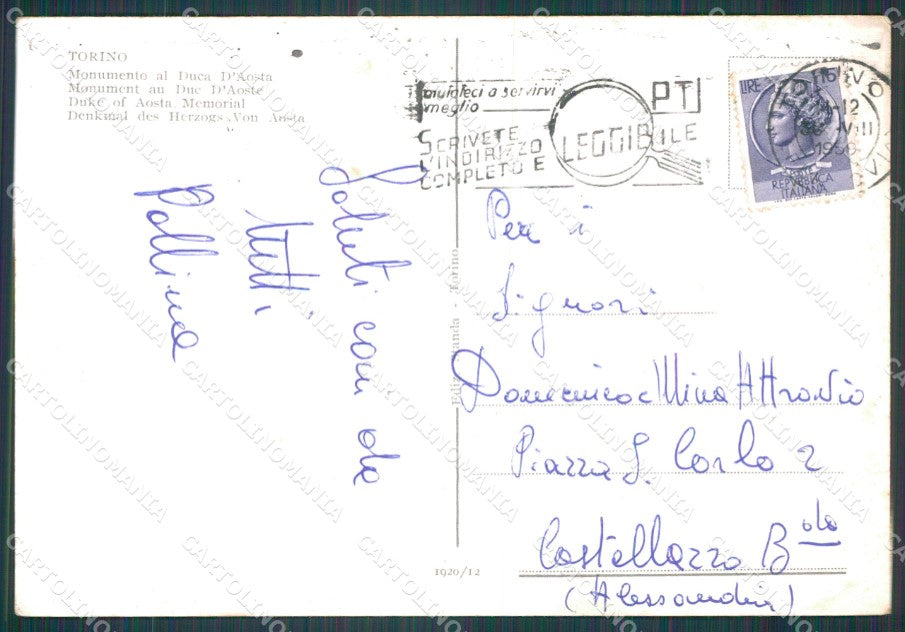 TORINO
Monumento al Duca D'Aosta
Monument au Duc D'Aoste
Duke of Aosta Memorial
Denkmal des Herzogs Von Aosta
Saluti cari da
tutti
Pollina
aiutateci a servirvi
meglio
SCRIVETE
L'INDIRIZZO
COMPLETO E LEGGIBILE
PT
LIRE
REPVBBLICA
ITALIANA
Per i
Signori
Domenico e Mina Attronio
Piazza S. Carlo 2
Castellazzo B.do
(Alessandria)
Torino
1920/12
CARTOLINOMANIA